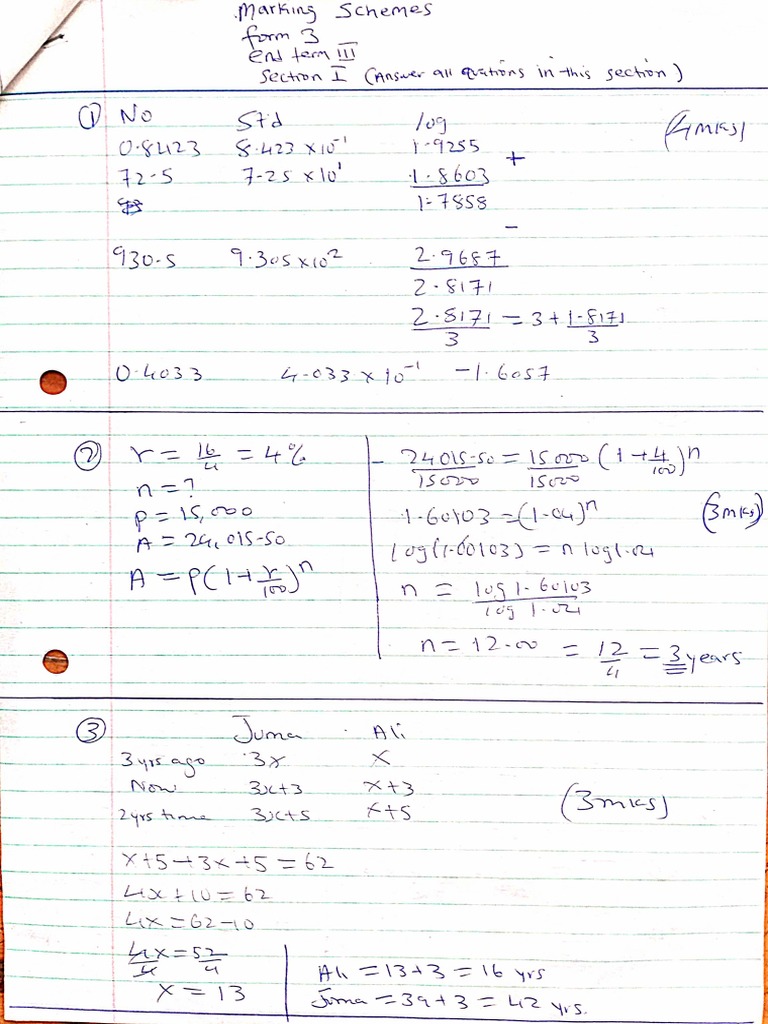 Marking Schemes
form 3
End term III
Section I (Answer all quations in this section)
① No Std log (4mks)
0.8423 8.423 x10⁻¹ 1.9255
72.5 7.25 x10¹ 1.8603 +
1.7858
−
930.5 9.305x10² 2.9687
2.8171
2.8171/3 = 3+1.8171/3
0.4033 4.033 x 10⁻¹ -1.6057
② r = 16/4 = 4%
n = ?
P = 15,000
A = 24,015.50
A = P(1+r/100)ⁿ
24015.50/15000 = 15000/15000 (1+4/100)ⁿ
1.60103 = (1.04)ⁿ (3mks)
log(1.60103) = n log1.04
n = log 1.60103/log 1.04
n = 12.00 = 12/4 = 3 years
③ Juma Ali
3yrs ago 3x x
Now 3x+3 x+3
2yrs time 3x+5 x+5
(3mks)
x+5+3x+5 = 62
4x+10 = 62
4x = 62-10
4x/4 = 52/4
x = 13
Ali = 13+3 = 16 yrs
Juma = 39+3 = 42 yrs.